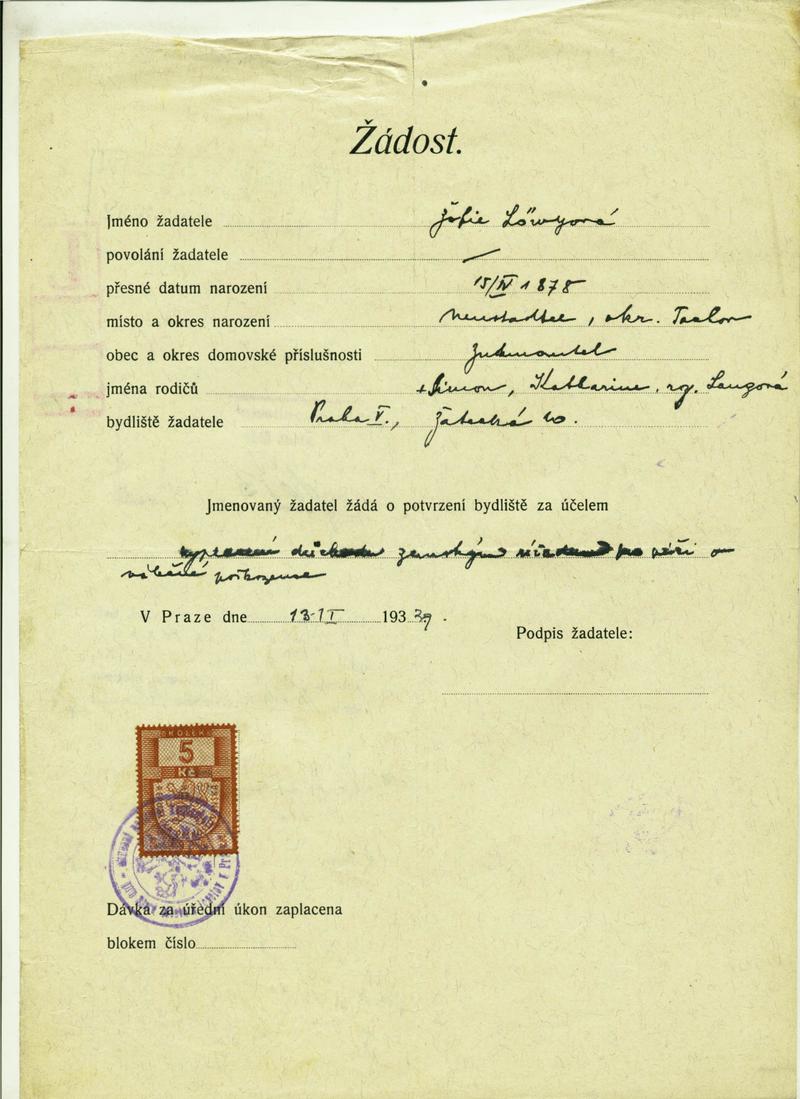 Žádost.
Jméno žadatele Žofie Löwyová
povolání žadatele —
přesné datum narození 15/IV 1878
místo a okres narození Neustadtel, okr. Tachov
obec a okres domovské příslušnosti Zuckmantel
jména rodičů +Simon, Katharine, roz. Langová
bydliště žadatele Praha V., Žatecká
Jmenovaný žadatel žádá o potvrzení bydliště za účelem
vyplacení důchodu zemským úřadem péčí o
válečné poškozence
V Praze dne 13-II 1939.
Podpis žadatele:
KOLEK
5
Kč
Dávka za úřední úkon zaplacena
blokem číslo